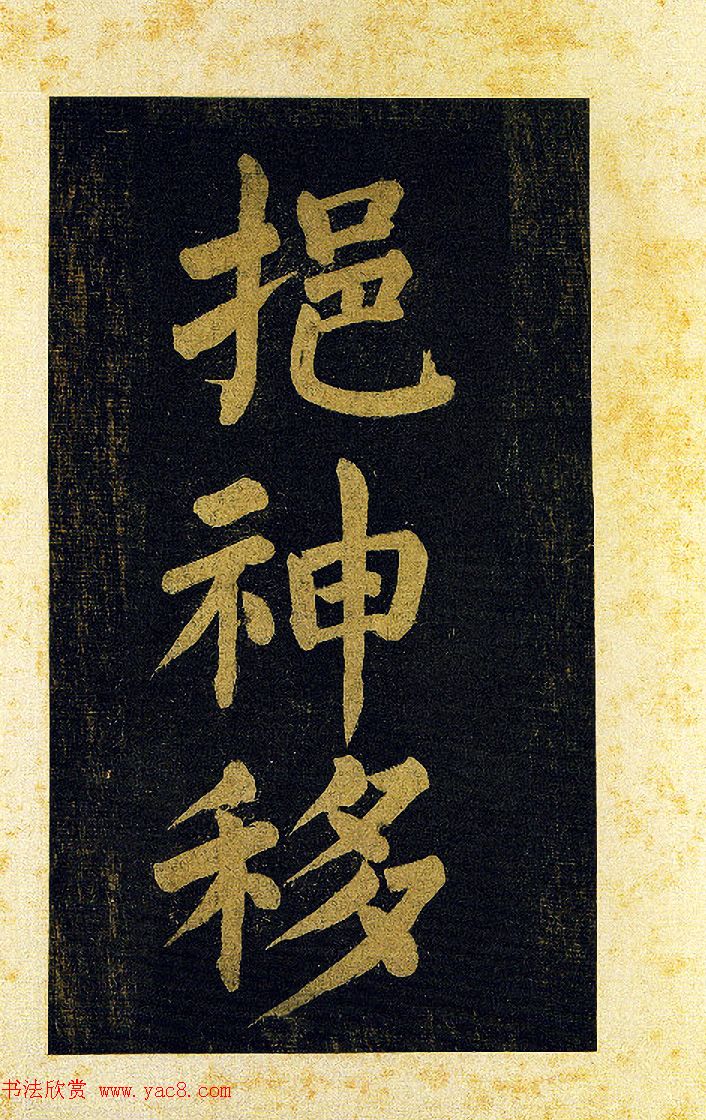 挹神移
书法欣赏 www.yac8.com